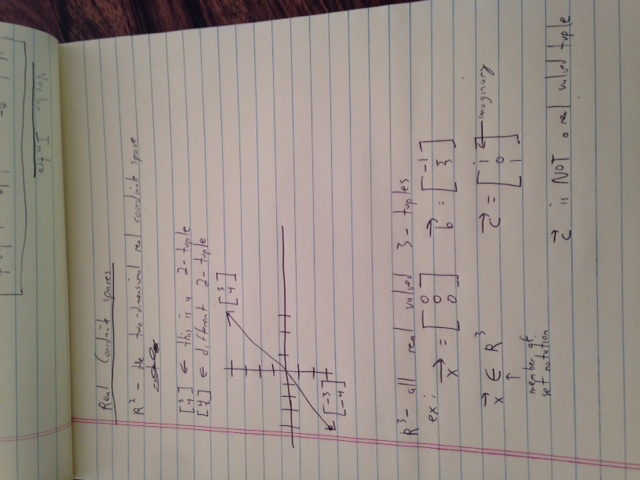 Vect- Intro
Real Coordinate spaces
R² - the two-dimensional real coordinate space
[3 4] ← this is a 2-tuple
[4 3] ← different 2-tuple
[3 4]
[-3 -4]
R³- all real valued 3-tuples
ex: x⃗ = [0 0 0] b⃗ = [-1 5 3]
x⃗ ∈ R³ c⃗ = [i 0 1] ← imaginary
↑
member of
set notation
c⃗ is NOT a real valued tuple